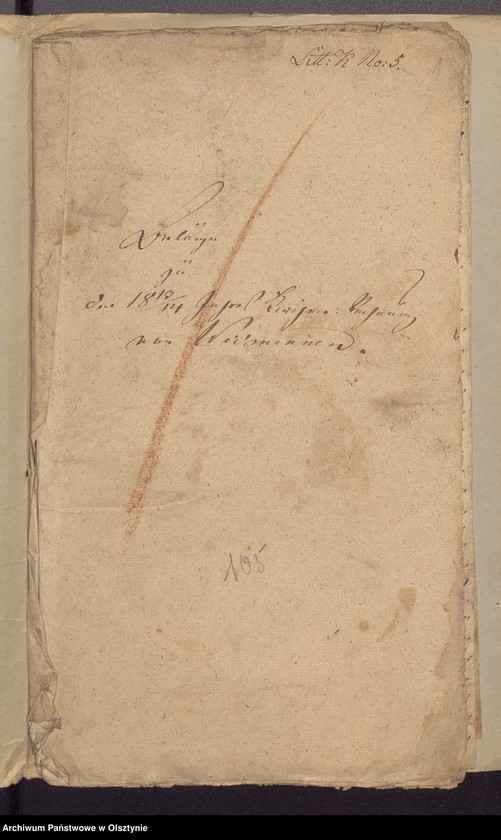 Litt: K No: 5.
Beläge
zu
der 18 13/14 Jahres Kirchen: Rechnung
von Widminnen.
105
Archiwum Państwowe w Olsztynie